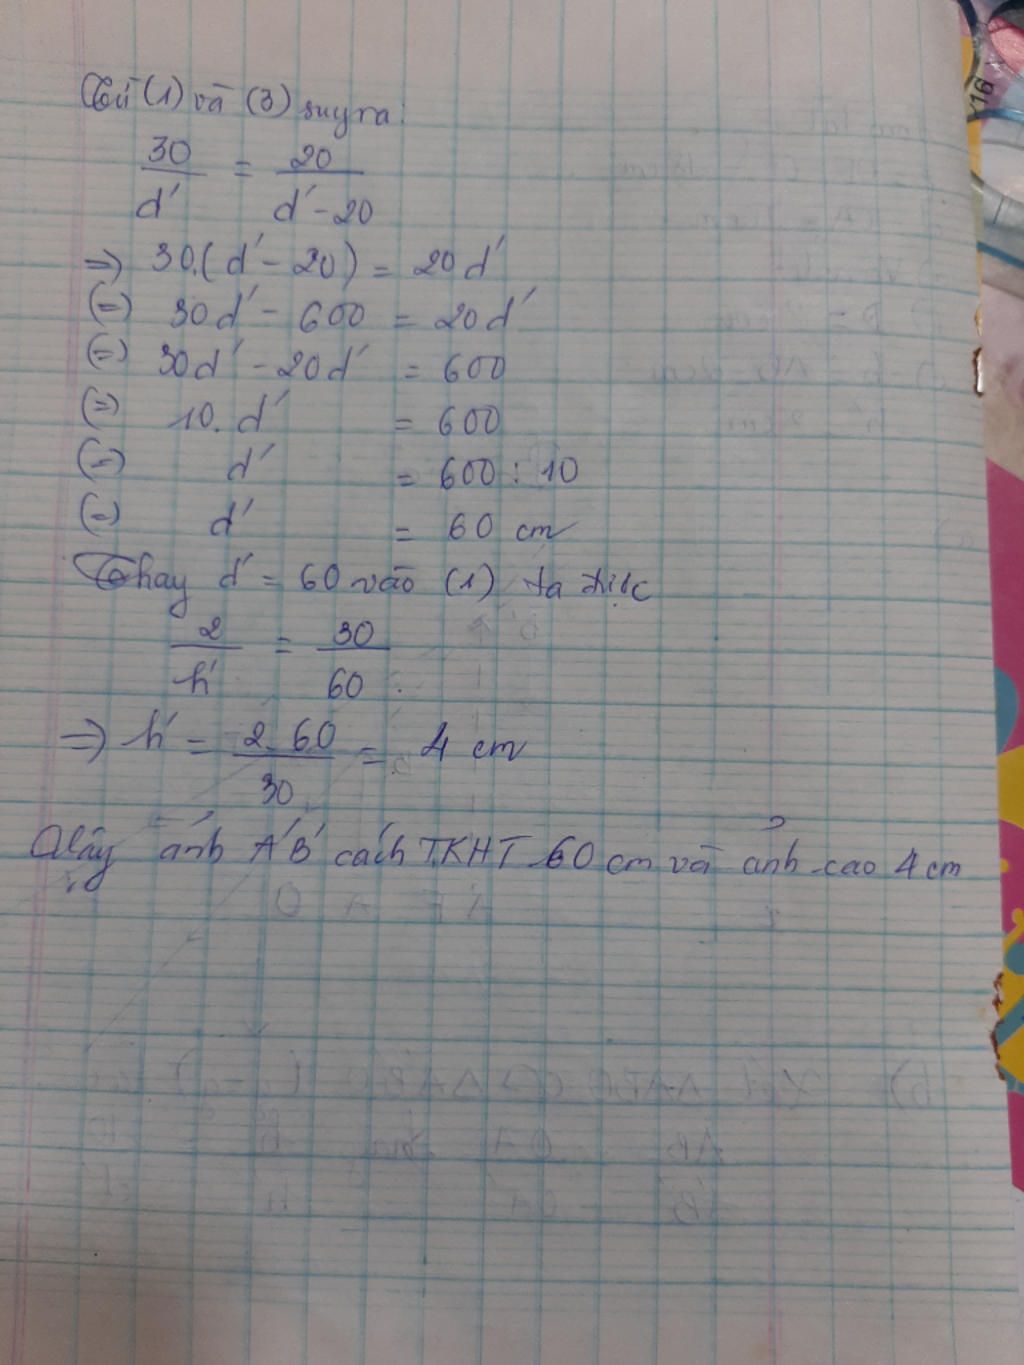 Từ (1) và (3) suy ra:
30/d' = 20/d'-20
=> 30.(d' - 20) = 20d'
(=) 30d' - 600 = 20d'
(=) 30d' - 20d' = 600
(=) 10. d' = 600
(=) d' = 600 : 10
(=) d' = 60 cm
Thay d' = 60 vào (1) ta được
2/h' = 30/60
=> h' = 2.60/30 = 4 cm
Vậy ảnh A'B' cách TKHT 60 cm và ảnh cao 4 cm